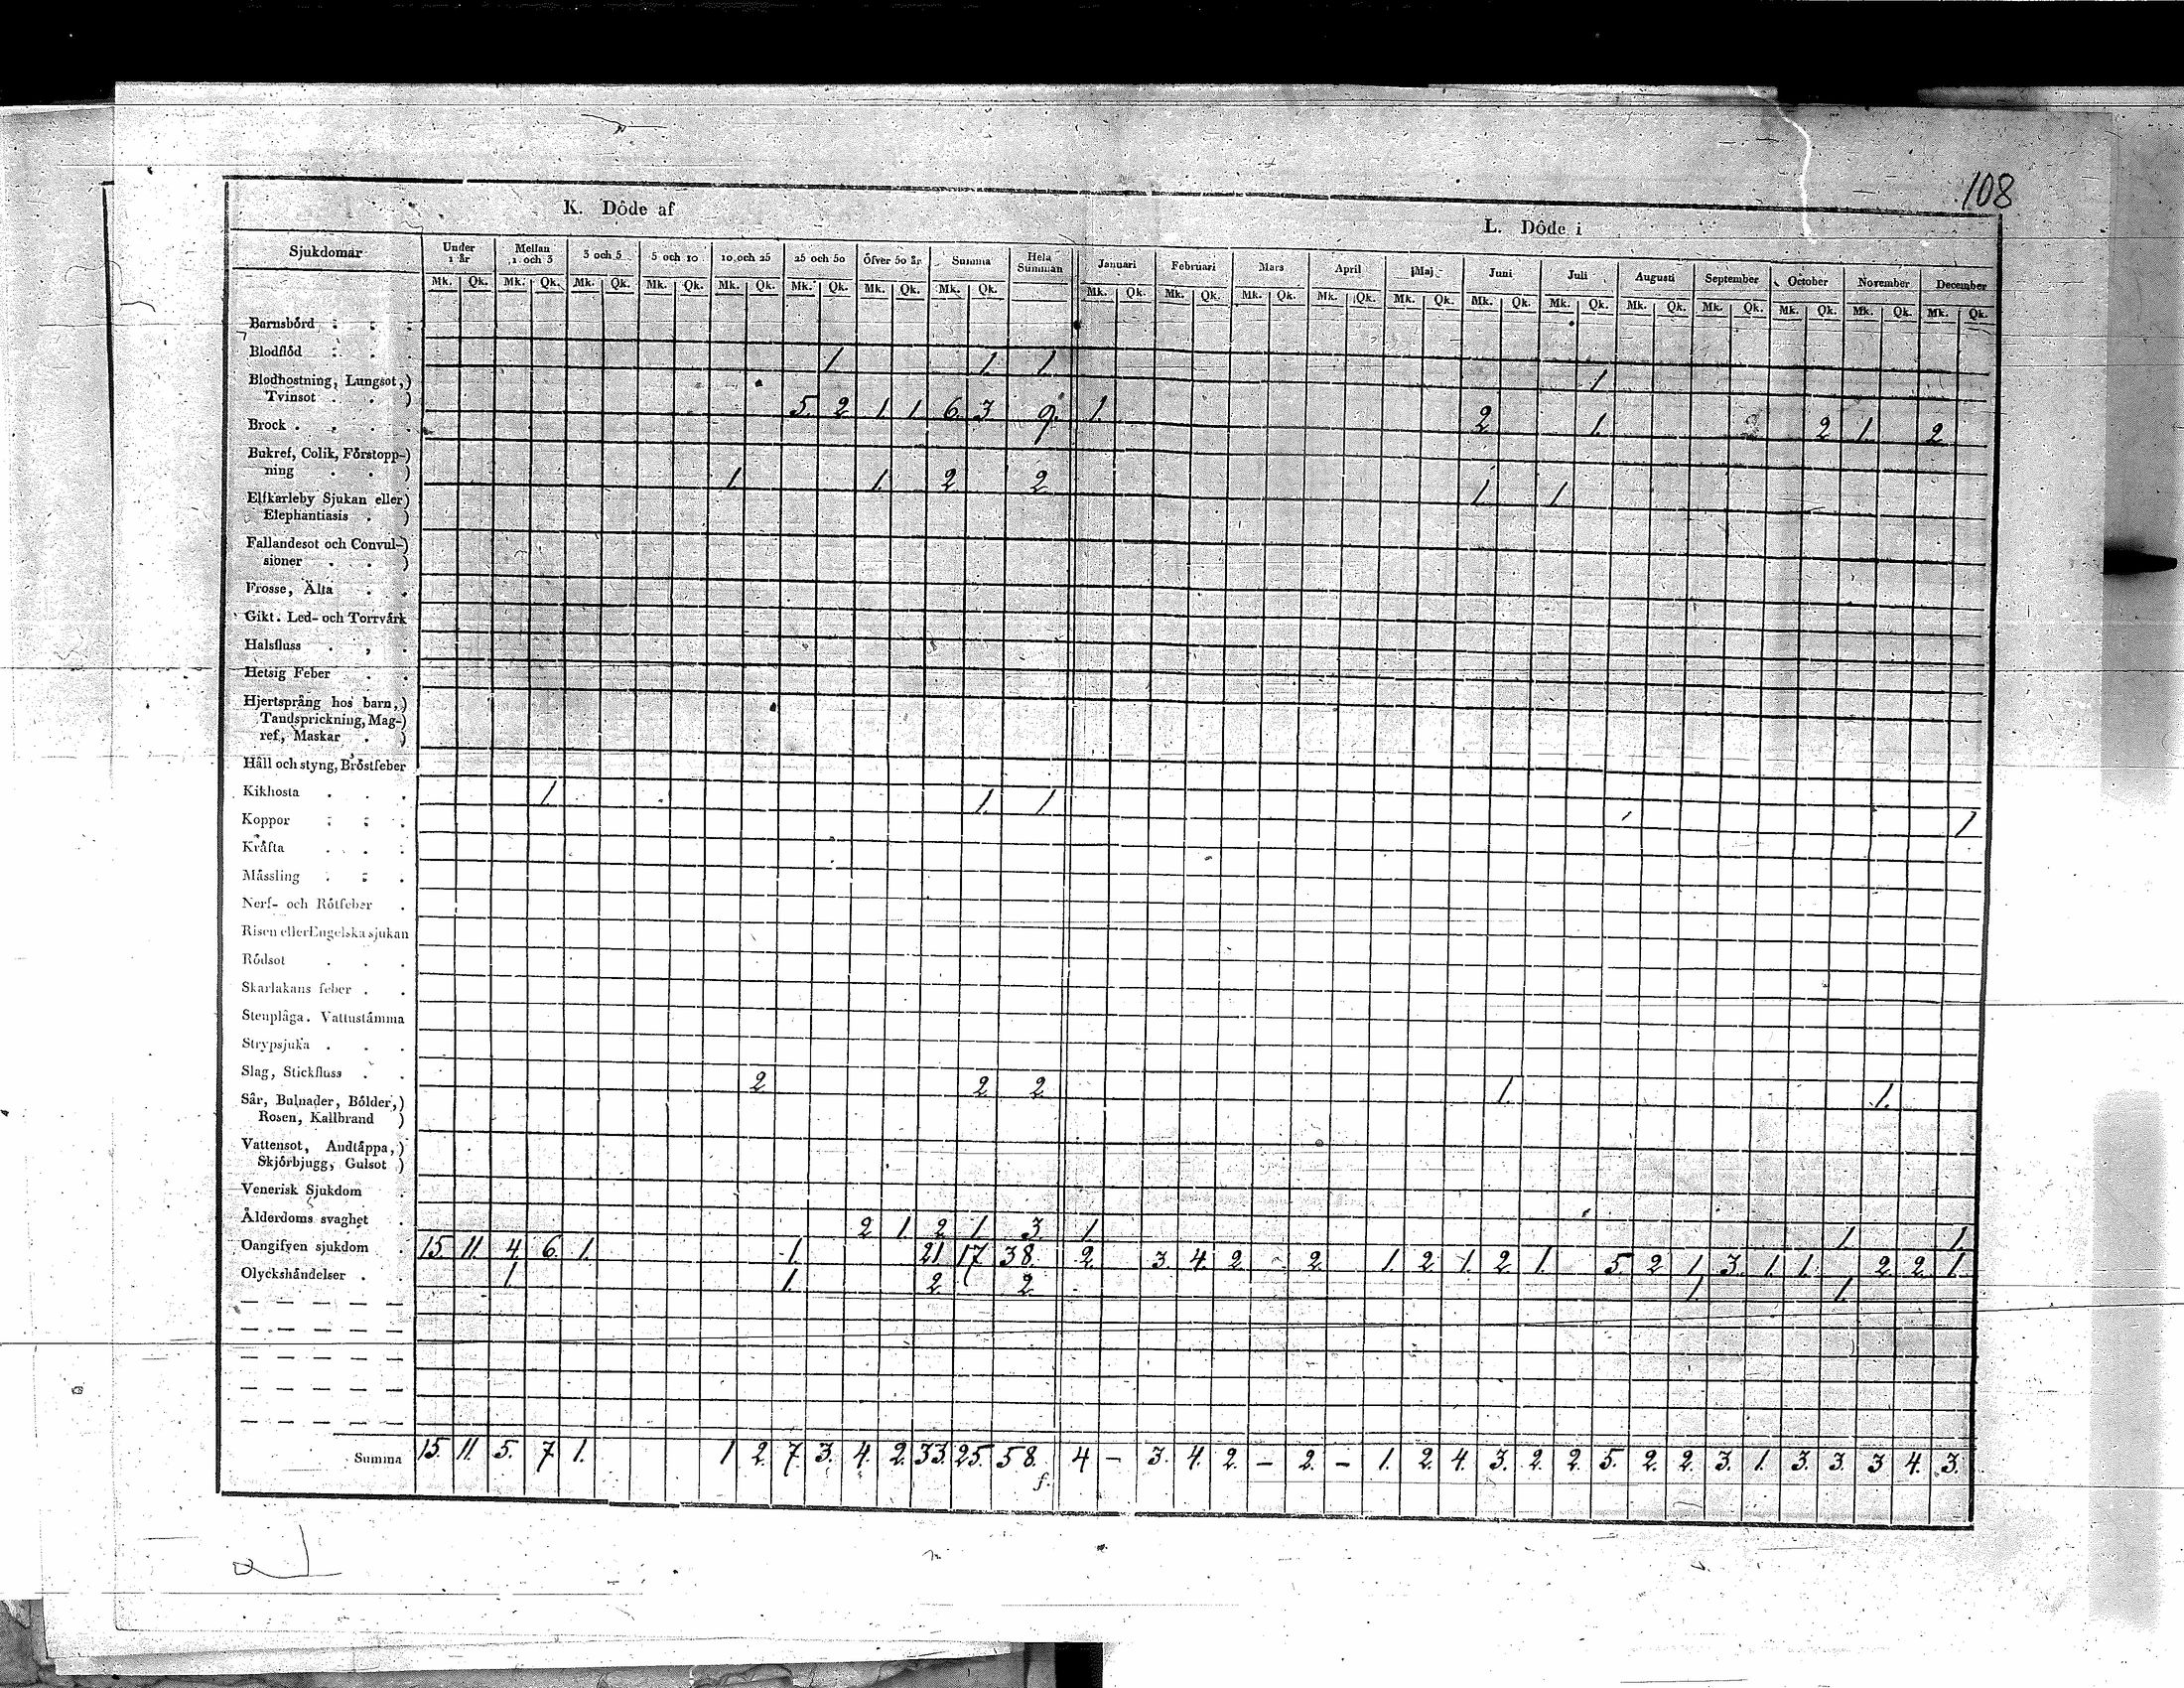 108
K. Döde af
L. Döde i
Sjukdomar Under 1 år Mellan 1 och 3 3 och 5 5 och 10 10 och 25 25 och 50 öfver 50 år Summa Hela Summan Januari Februari Mars April Maj Juni Juli Augusti September October November December
Mk. Qk. Mk. Qk. Mk. Qk. Mk. Qk. Mk. Qk. Mk. Qk. Mk. Qk. Mk. Qk. Mk. Qk. Mk. Qk. Mk. Qk. Mk. Qk. Mk. Qk. Mk. Qk. Mk. Qk. Mk. Qk. Mk. Qk. Mk. Qk. Mk. Qk. Mk. Qk.
Barnsbörd
Blodflöd 1 1. 1. 1
Blodhostning, Lungsot,)
Tvinsot . . ) 5. 2 1 1 6. 3 9. 1. 2 1. 2 2 1. 2
Brock . . . .
Bukref, Colik, Förstopp-)
ning . . ) 1. 1. 2 2 1. 1
Elfkarleby Sjukan eller)
Elephantiasis . )
Fallandesot och Convul-)
sioner . . )
Frosse, Älta . .
Gikt. Led- och Torrvärk
Halsfluss . , .
Hetsig Feber . .
Hjertsprång hos barn,)
Tandsprickning, Mag-)
ref, Maskar . )
Håll och styng, Bröstfeber
Kikhosta . . . 1. 1. 1. 1
Koppor
Kräfta . . .
Mässling
Nerf- och Rötfeber .
Risen eller Engelska sjukan
Rödsot . . .
Skarlakans feber . .
Stenplåga. Vattustämma
Strypsjuka . . .
Slag, Stickfluss . . 2 2 2 1. 1.
Sår, Bulnader, Bölder,)
Rosen, Kallbrand )
Vattensot, Andtäppa,)
Skjörbjugg, Gulsot )
Venerisk Sjukdom .
Ålderdoms svaghet . 2 1. 2 1. 3 1. 1. 1.
Oangifven sjukdom . 15 11. 4 6. 1. 1. 21 17 38. 2. 3 4. 2. 2. 1 2 1. 2 1. 5. 2 1 3. 1. 1. 2. 2. 1.
Olyckshändelser . . 1 1. 2 2. 1. 1.
Summa 15. 11. 5. 7 1. 1 2. 7. 3. 4. 2. 33. 25. 58. 4 – 3. 4. 2. – 2. – 1. 2. 4. 3. 2. 2. 5. 2. 2. 3. 1. 3. 3. 3 4. 3.
f.